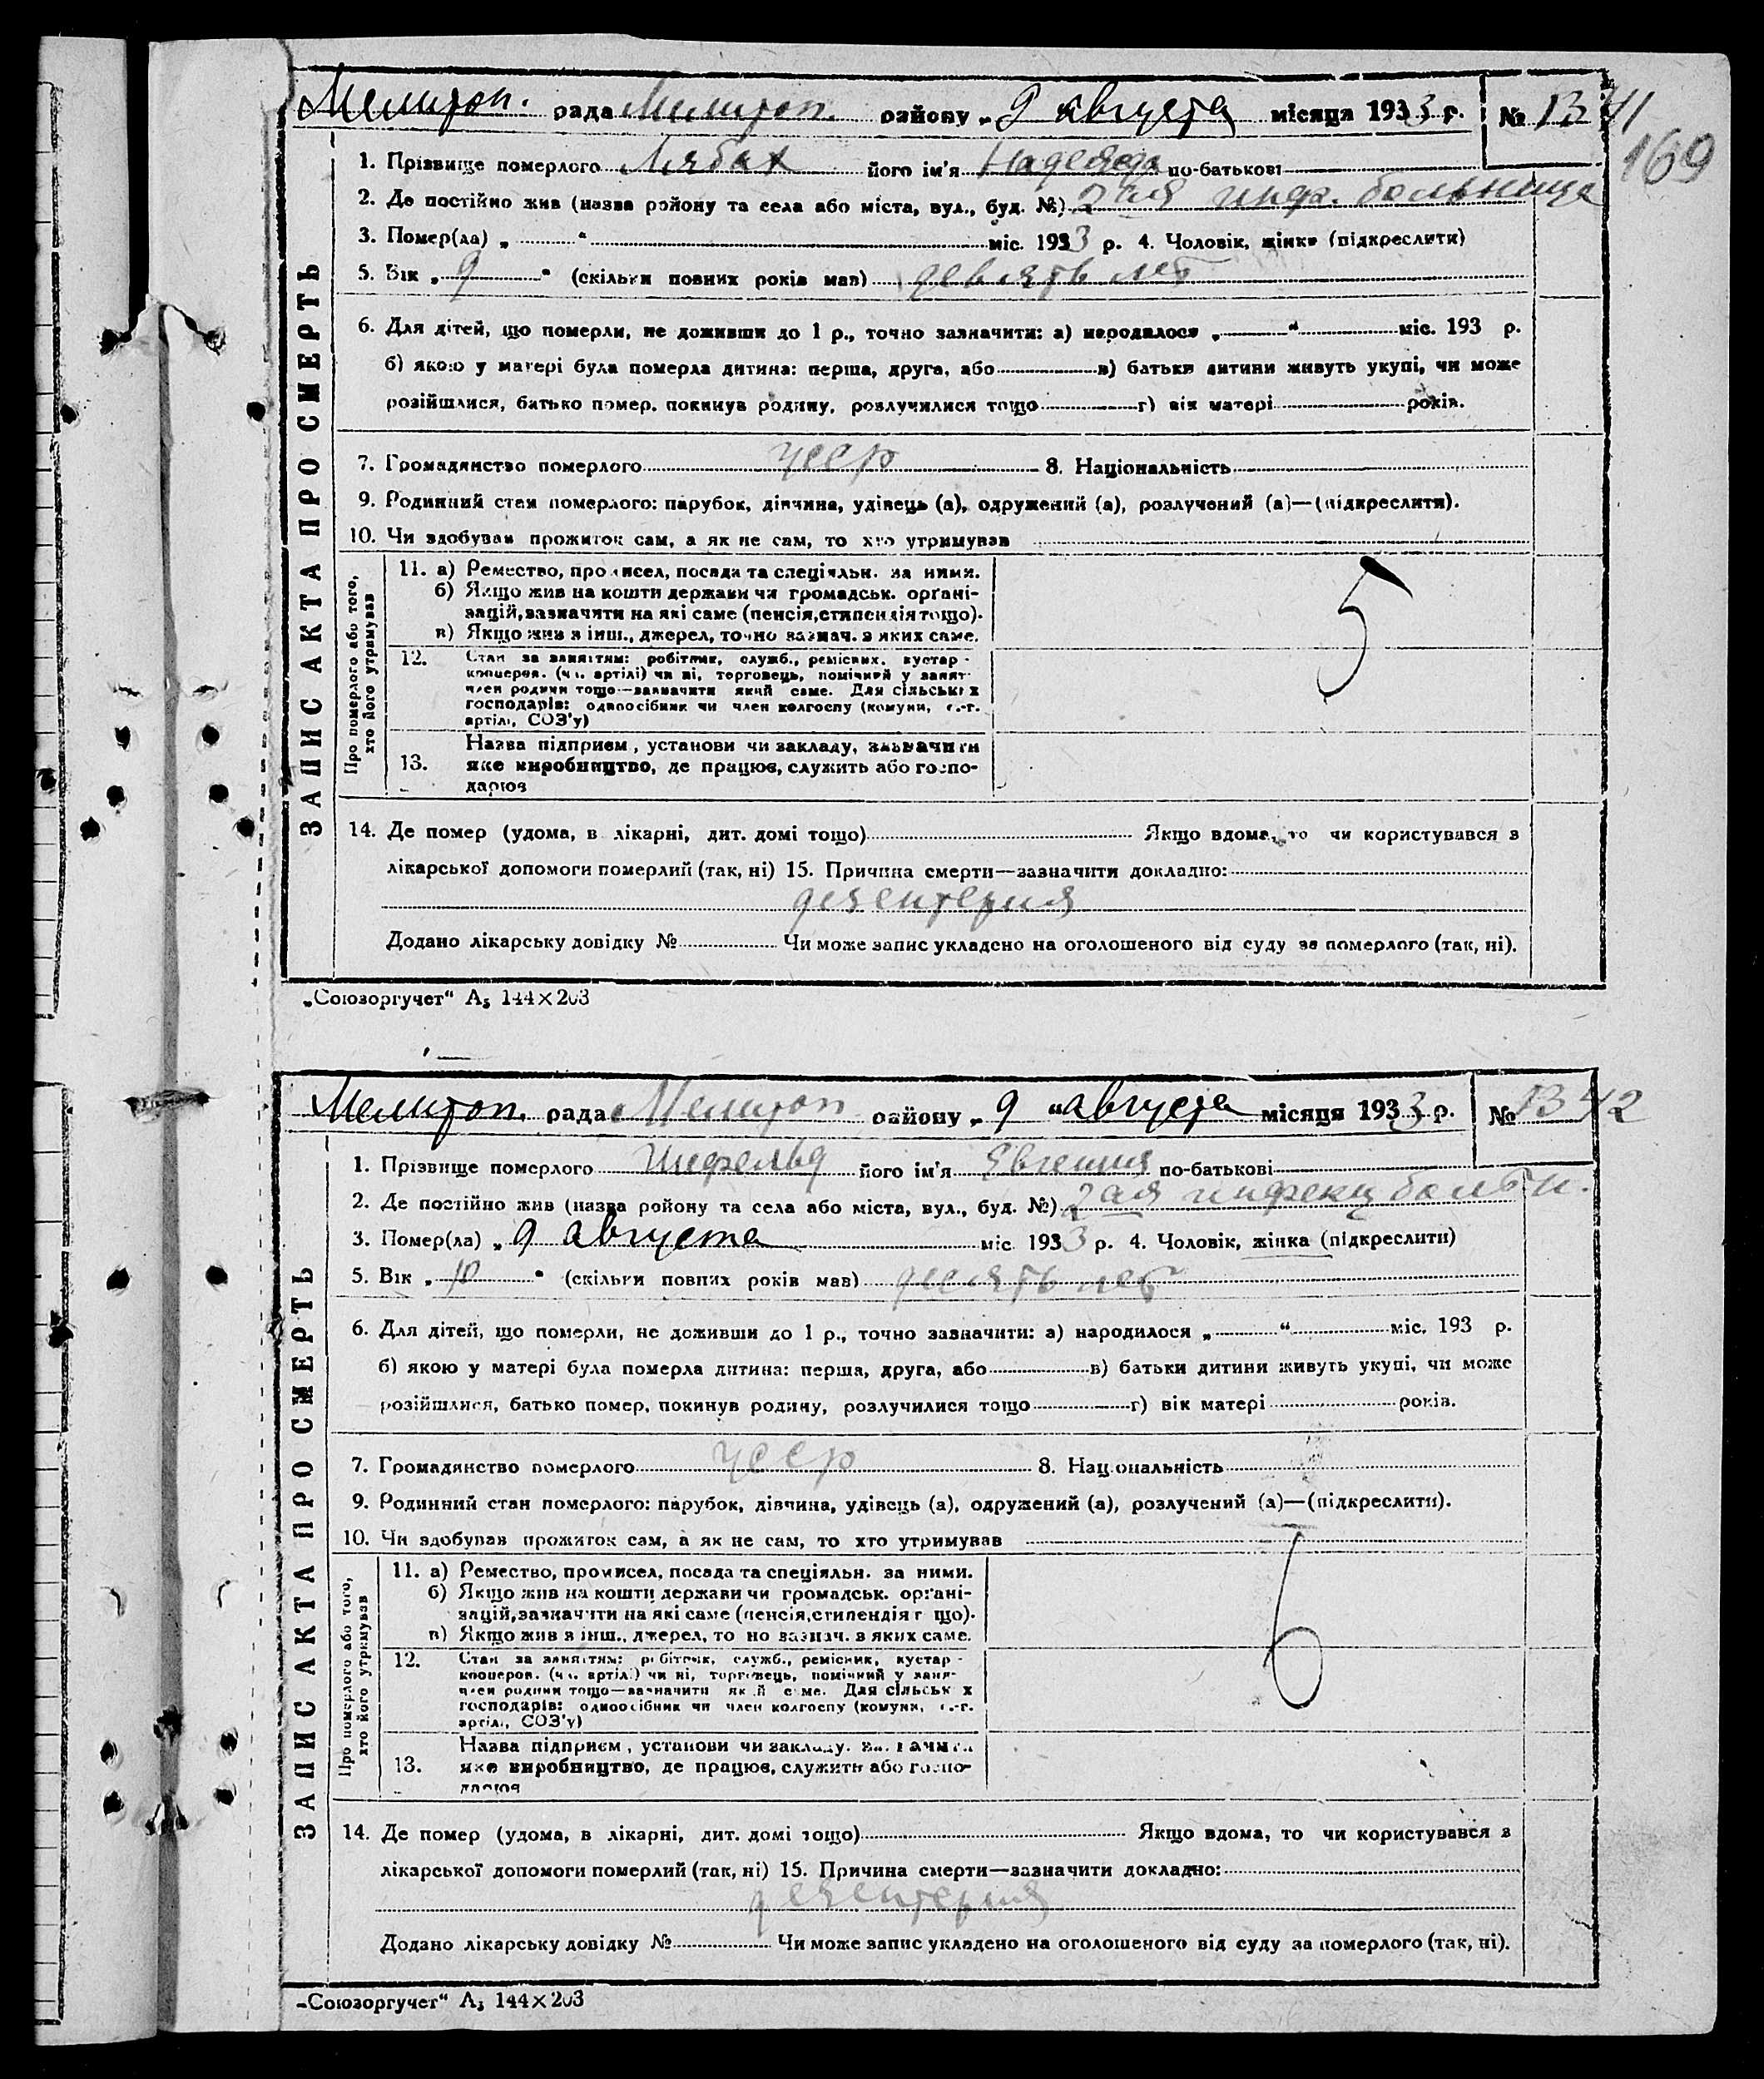 Мелитоп. рада Мелитоп. району „ 9 " августа місяця 1933 р. № 1341
169
1. Прізвище померлого Лябах його ім'я Надежда по-батькові
2. Де постійно жив (назва району та села або міста, вул., буд. №) 2ая инф. больница
3. Помер(ла) „ " міс. 1933 р. 4. Чоловік, жінка (підкреслити)
5. Вік „ 9 " (скільки повних років мав) девять лет
6. Для дітей, що померли, не доживши до 1 р., точно зазначити: а) народилося „ " міс. 193 р.
б) якою у матері була померла дитина: перша, друга, або в) батьки дитини живуть укупі, чи може
розійшлися, батько помер, покинув родину, розлучилися тощо г) вік матері років.
7. Громадянство померлого усср 8. Національність
9. Родинний стан померлого: парубок, дівчина, удівець (а), одружений (а), розлучений (а)—(підкреслити).
10. Чи здобував прожиток сам, а як не сам, то хто утримував
ЗАПИС АКТА ПРО СМЕРТЬ
Про померлого або того, хто його утримував
11. а) Ремество, промисел, посада та спеціяльн. за ними.
б) Якщо жив на кошти держави чи громадськ. орґані-
зацій, зазначити на які саме (пенсія, стипендія тощо).
в) Якщо жив з інш., джерел, точно зазнач. з яких саме.
5
12. Стан за заняттям: робітник, служб., ремісник, кустар -
кооперов. (чл. артілі) чи ні, торговець, помічний у занят-
член родини тощо—зазначити який саме. Для сільських
господарів: одноосібник чи член колгоспу (комуни, с.-г.
артілі, СОЗ'у)
13. Назва підприєм, установи чи закладу, зазначити
яке виробництво, де працює, служить або госпо-
дарює
14. Де помер (удома, в лікарні, дит. домі тощо) Якщо вдома, то чи користувався з
лікарської допомоги померлий (так, ні) 15. Причина смерти—зазначити докладно:
дезентерия
Додано лікарську довідку № Чи може запис укладено на оголошеного від суду за померлого (так, ні).
„Союзоргучет" А₅ 144×203
Мелитоп. рада Мелитоп району „ 9 " августа місяця 1933 р. № 1342
1. Прізвище померлого його ім'я Евгения по-батькові
2. Де постійно жив (назва району та села або міста, вул., буд. №) 2ая инфекц больн.
3. Помер(ла) „ 9 августа міс 1933 р. 4. Чоловік, жінка (підкреслити)
5. Вік „ 10 " (скільки повних років мав) десять лет
6. Для дітей, що померли, не доживши до 1 р., точно зазначити: а) народилося „ " міс. 193 р.
б) якою у матері була померла дитина: перша, друга, або в) батьки дитини живуть укупі, чи може
розійшлися, батько помер, покинув родину, розлучилися тощо г) вік матері років.
7. Громадянство померлого усср 8. Національність
9. Родинний стан померлого: парубок, дівчина, удівець (а), одружений (а), розлучений (а)—(підкреслити).
10. Чи здобував прожиток сам, а як не сам, то хто утримував
ЗАПИС АКТА ПРО СМЕРТЬ
Про померлого або того, хто його утримував
11. а) Ремество, промисел, посада та спеціяльн. за ними.
б) Якщо жив на кошти держави чи громадськ. орґані-
зацій, зазначити на які саме (пенсія, стипендія тощо).
в) Якщо жив з інш., джерел, точно зазнач. з яких саме.
6
12. Стан за заняттям: робітник, служб., ремісник, кустар -
кооперов. (чл. артілі) чи ні, торговець, помічний у заня-
член родини тощо—зазначити який саме. Для сільських
господарів: одноосібник чи член колгоспу (комуни, с.-г.
артілі, СОЗ'у)
13. Назва підприєм, установи чи закладу, зазначити
яке виробництво, де працює, служить або госпо-
дарює
14. Де помер (удома, в лікарні, дит. домі тощо) Якщо вдома, то чи користувався з
лікарської допомоги померлий (так, ні) 15. Причина смерти—зазначити докладно:
дезентерия
Додано лікарську довідку № Чи може запис укладено на оголошеного від суду за померлого (так, ні).
„Союзоргучет" А₅ 144×203